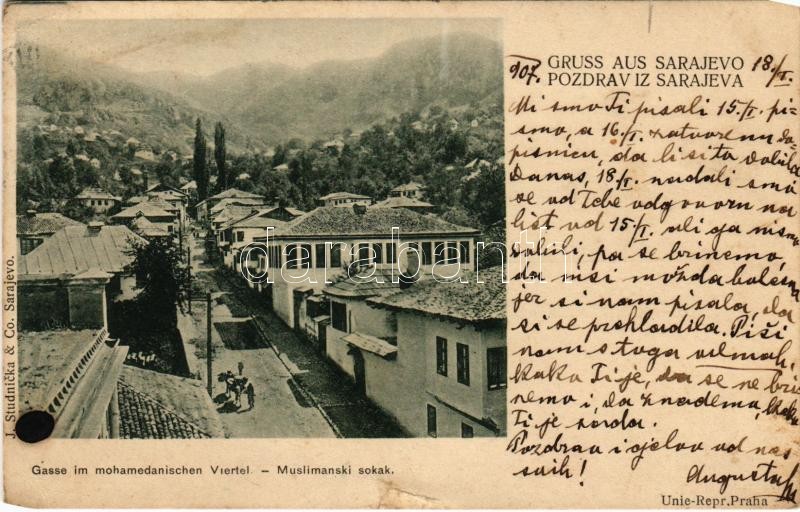 GRUSS AUS SARAJEVO
POZDRAV IZ SARAJEVA
907. 18/I.
Mi smo Ti pisali 15./I. pi-
smo, a 16./I. zatvorenu do-
pisnicu, da li si to dobila
Danas, 18/I. nadali smi
se od Tebe odgovoru na
list od 15/I. ali ga nismo
dobili, pa se brinemo,
da nisi možda bolesna
jer si nam pisala, da
si se prehladila. Piši
nam stoga odmah,
kako Ti je, da se ne bri-
nemo i, da znademo, kako
Ti je sada.
Pozdrav i cjelov od nas
svih!
Augusta
J. Studnička & Co. Sarajevo.
Gasse im mohamedanischen Viertel. – Muslimanski sokak.
Unie-Repr. Praha
darabanth